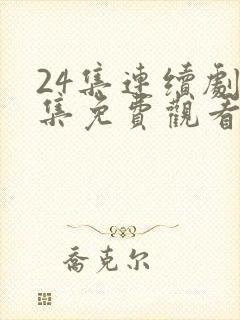 24集連續劇
集免費觀看
喬克尔